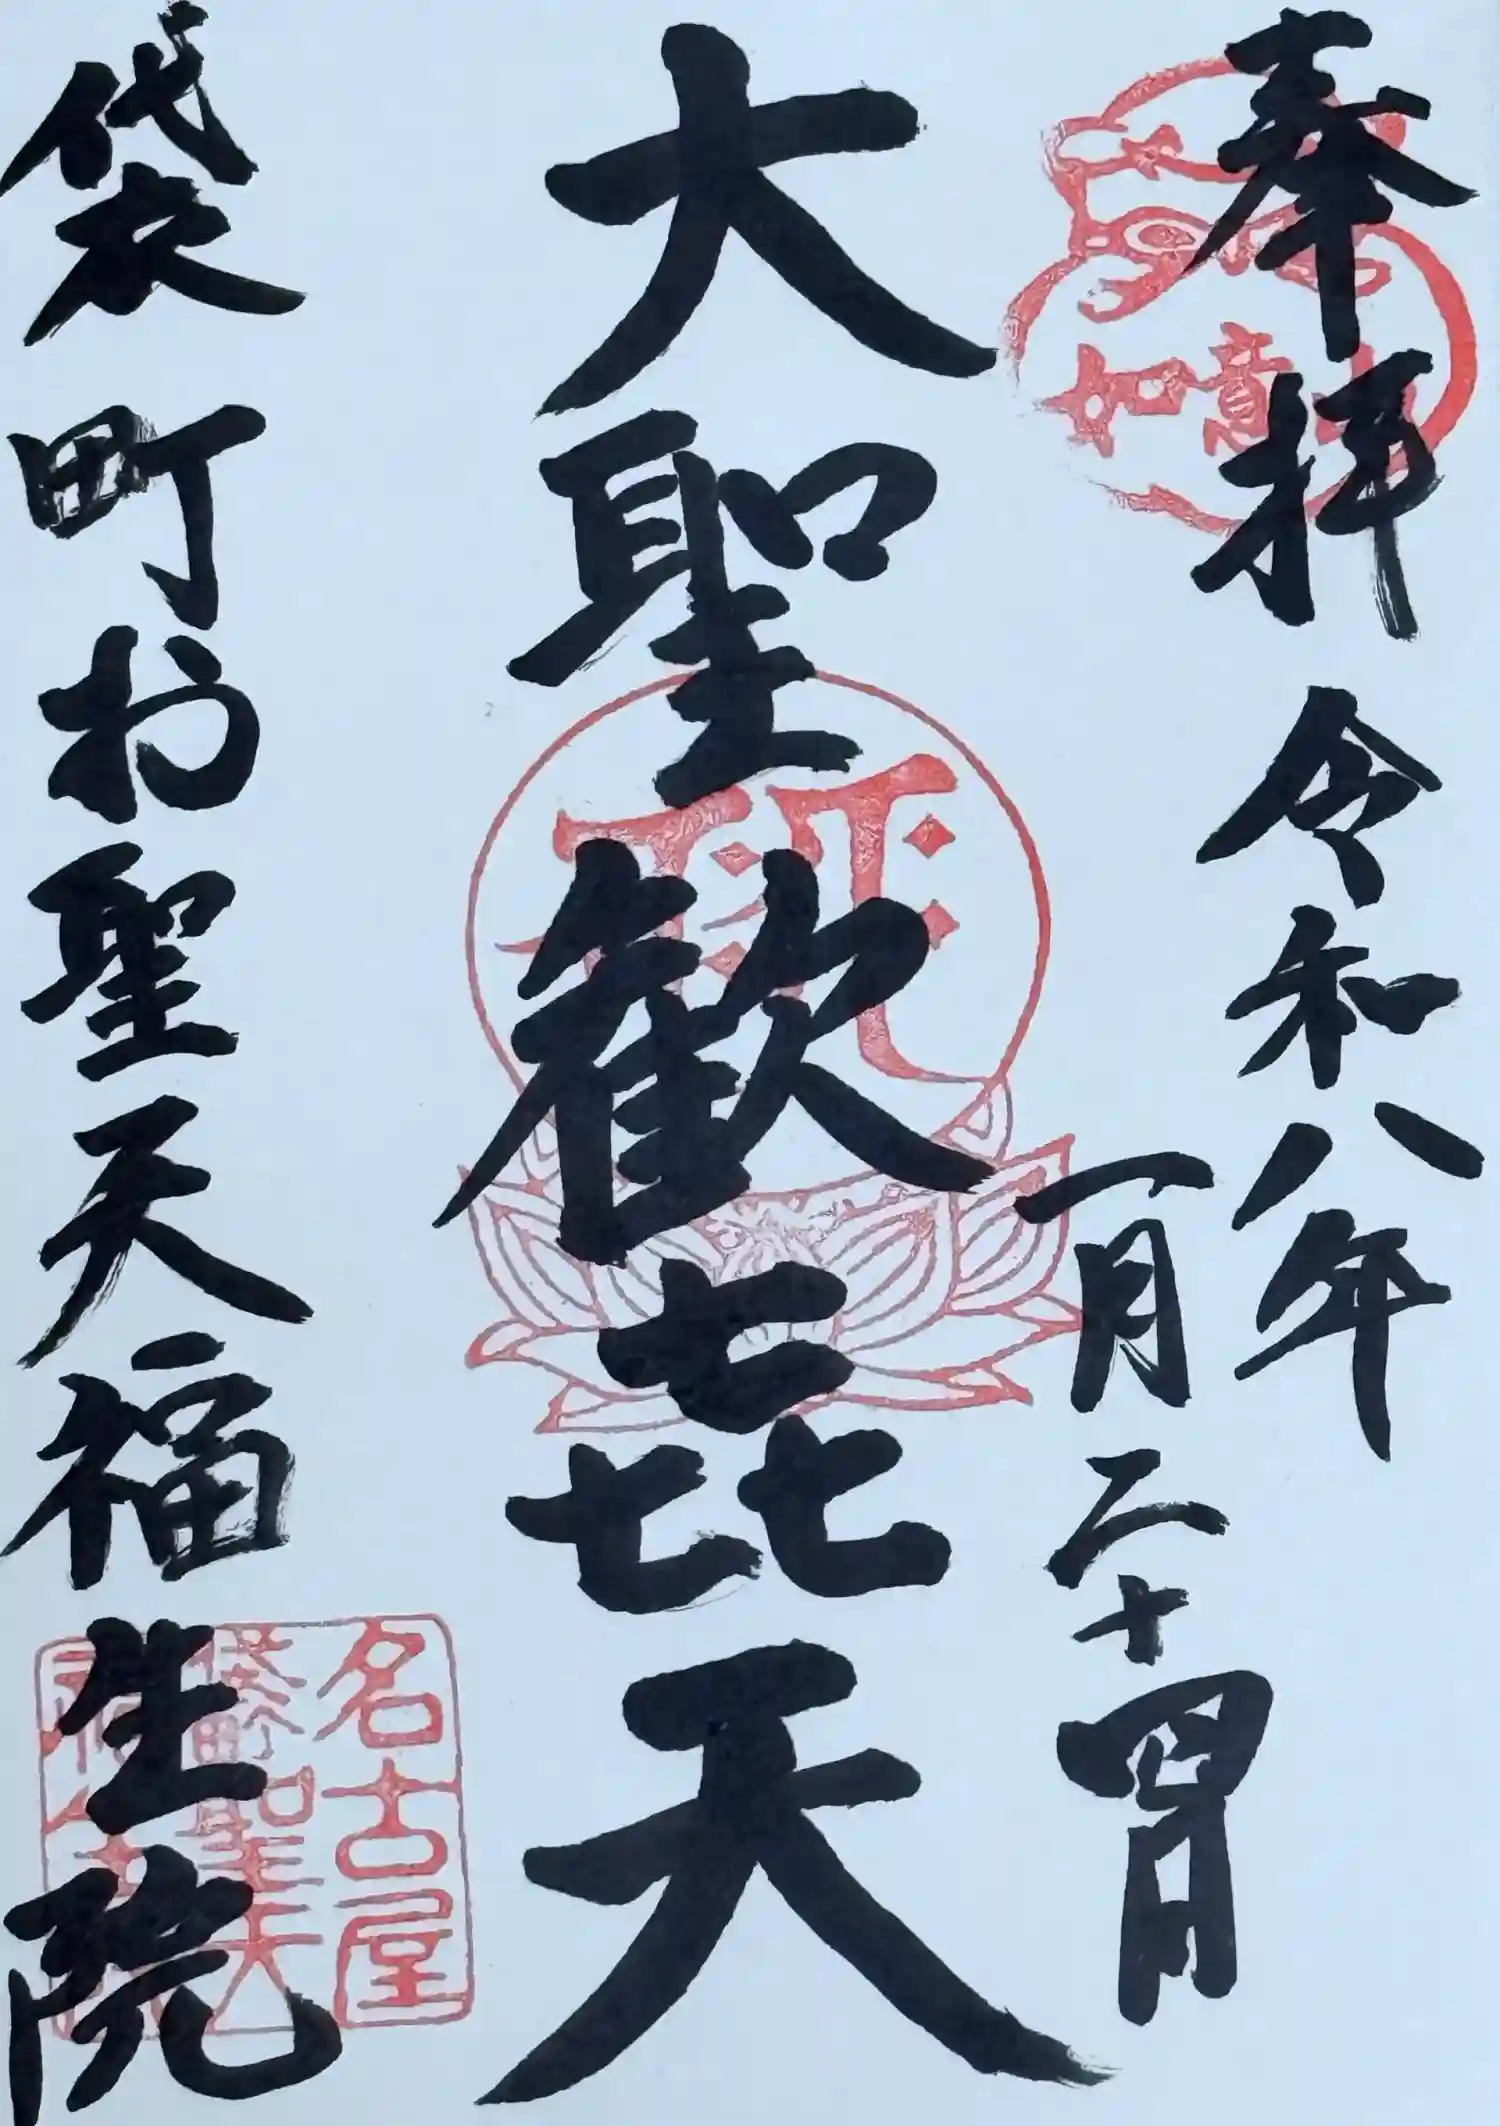 奉拝
令和八年
一月二十四日
如意
大聖歓㐂天
袋町お聖天福生院
名古屋
袋町聖天
福生院